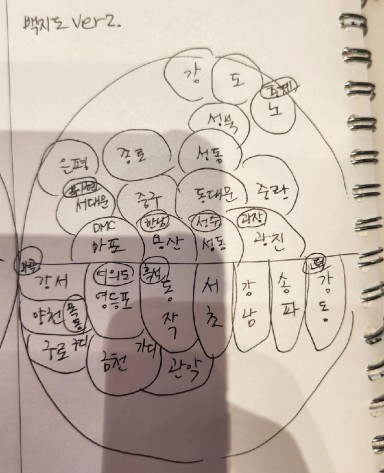 백지도 ver2.
강 도
노
성북
은평 종로 성동
서대문 중구 동대문 중랑
DMC
마포 용산 성동 광진
강서 여의도 서 강 송 강
양천 목동 영등포 동 초 남 파 동
작
구로 금천 가디 관악